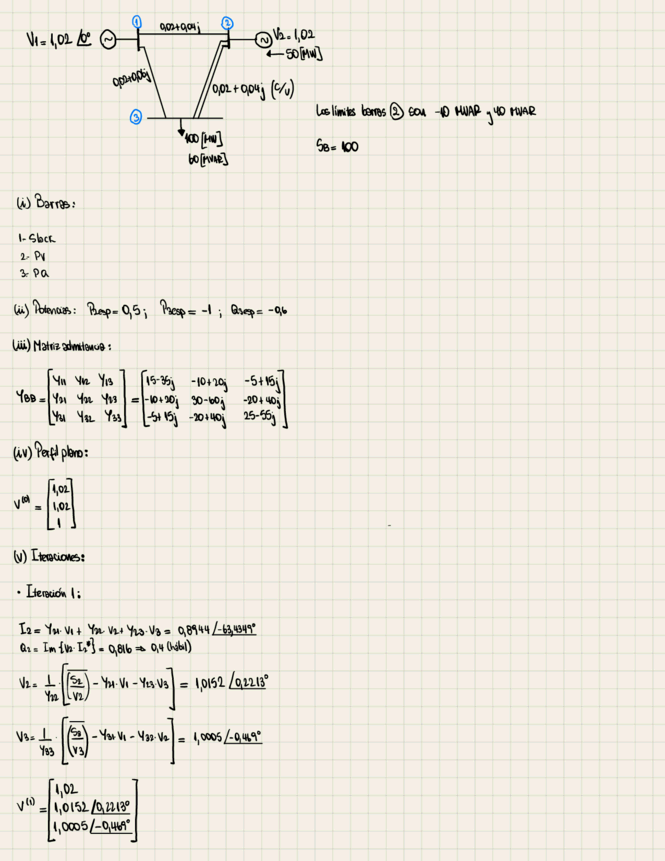 ① 0,02+0,04j ②
V1 = 1,02 /0° V2 = 1,02
← 50 [MW]
0,02+0,06j 0,02 + 0,04j (c/u)
③
100 [MW]
60 [MVAR]
Los límites barras ② son -10 MVAR y 40 MVAR
SB = 100
(i) Barras:
1- Slack
2- PV
3- PQ
(ii) Potencias: P2esp = 0,5 ; P3esp = -1 ; Q3esp = -0,6
(iii) Matriz admitancia:
Y11 Y12 Y13 15-35j -10+20j -5+15j
YBB = Y21 Y22 Y23 = -10+20j 30-60j -20+40j
Y31 Y32 Y33 -5+15j -20+40j 25-55j
(iv) Perfil plano:
1,02
V(0) = 1,02
1
(v) Iteraciones:
• Iteración 1:
I2 = Y21·V1 + Y22·V2 + Y23·V3 = 0,8944 /-63,4349°
Q2 = Im {V2·I2*} = 0,816 ⇒ 0,4 (hábil)
V2 = 1/Y22 · [(S2/V2) - Y21·V1 - Y23·V3] = 1,0152 /0,2213°
V3 = 1/Y33 · [(S3/V3) - Y31·V1 - Y32·V2] = 1,0005 /-0,469°
1,02
V(1) = 1,0152 /0,2213°
1,0005 /-0,469°